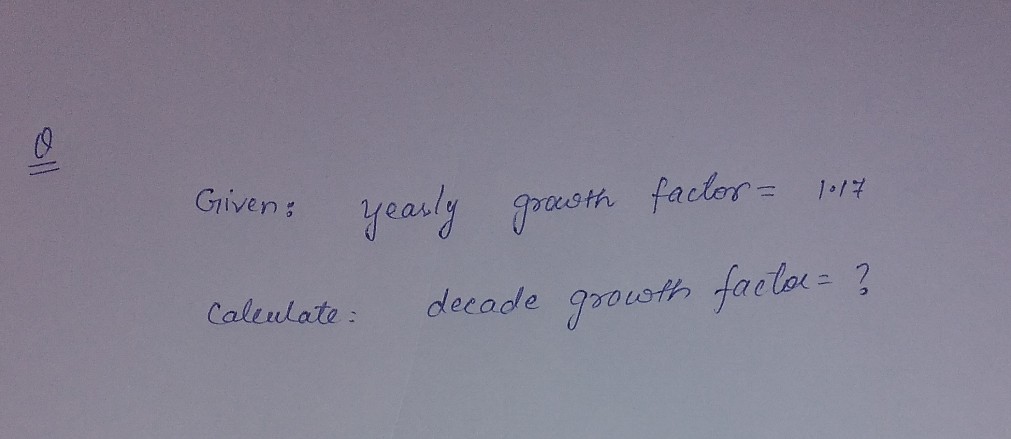 Q
Given: yearly growth factor = 1.17
Calculate: decade growth factor = ?